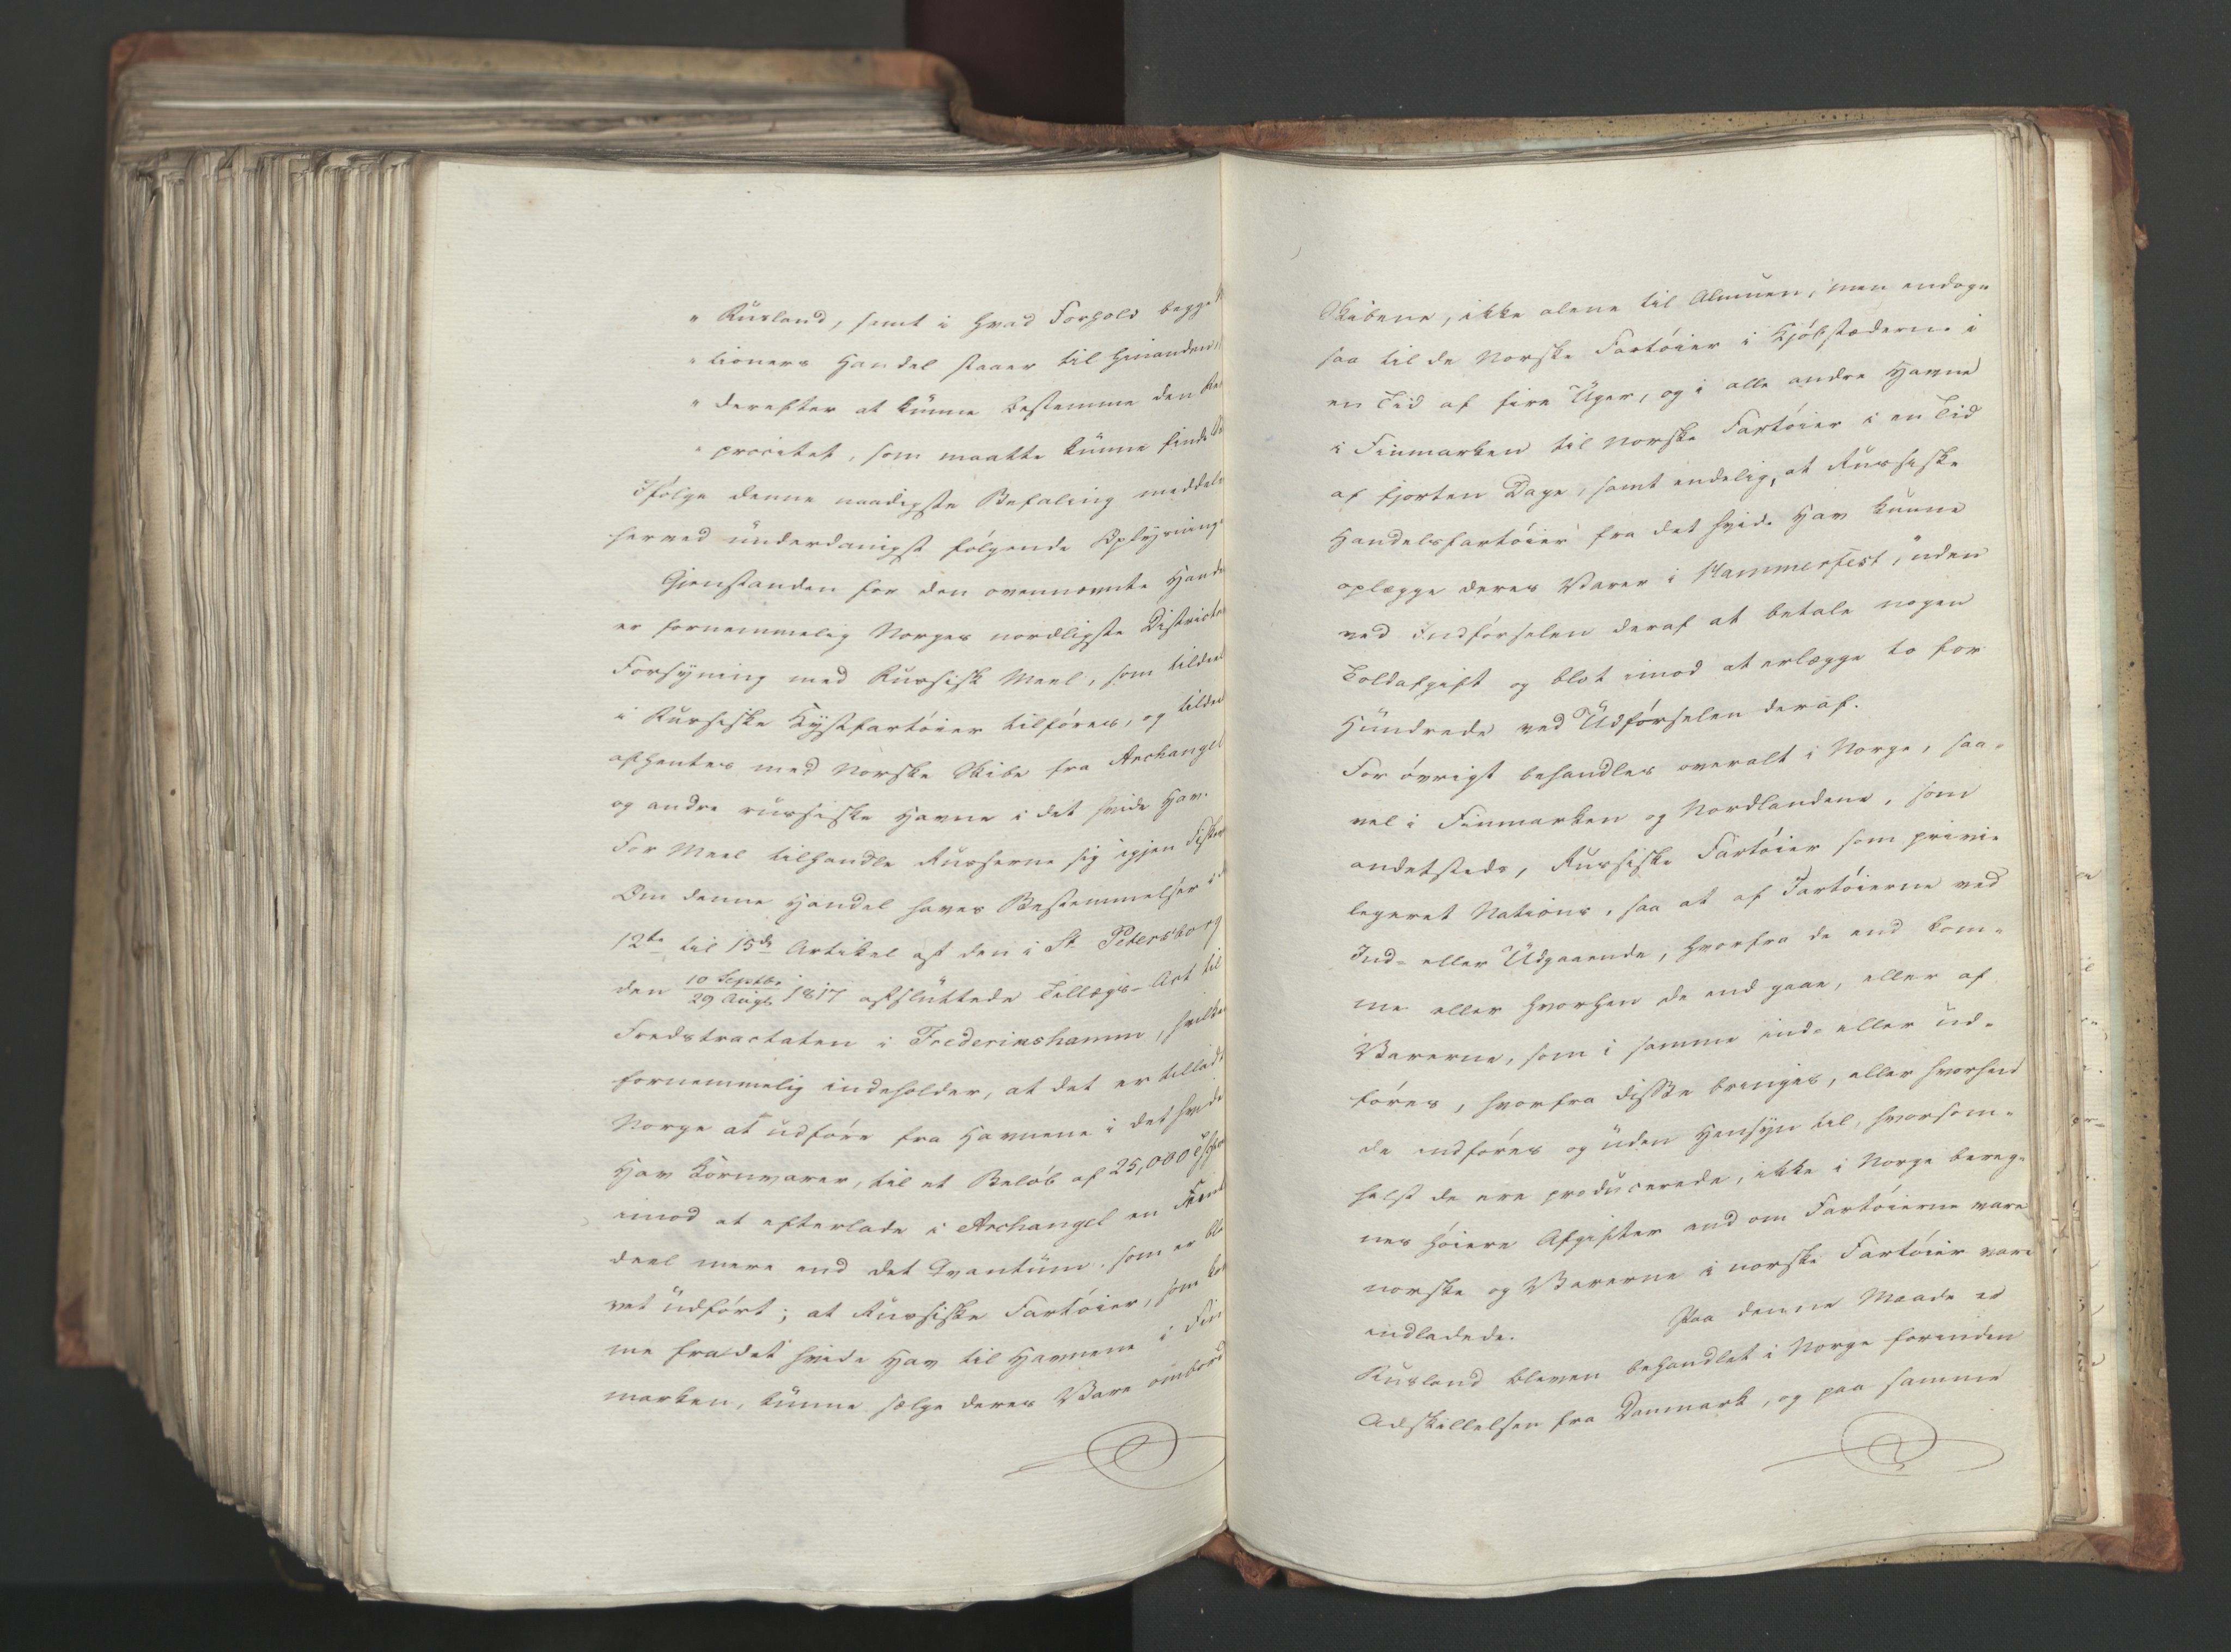 " Rusland, samt i hvad Forhold begge
" tioners Handel staaer til hinanden,
" derefter at kunne bestemme den Re
" procitet, som maatte kunne finde
Ifølge denne naadigste Befaling meddele
herved underdanigst følgende Oplysning
Gjenstanden for den ovennævnte Hand
er fornemmelig Norges nordligste Districte
Forsyning med Russisk Meel, som tildeel
i Russiske Kystfartøier tilføres, og tildeel
afhentes med Norske Skibe fra Archangel
og andre russiske Havne i det hvide Hav.
For Meel tilhandle Russerne sig igjen Fiske
Om denne Handel haves Bestemmelser i
12te til 15de Artikel af den i St Petersborg
den 10 Septbr/29 Augs 1817 afsluttede Tillægs-Act til
Fredstractaten i Fredericshamn, hvilke
fornemmelig indeholder, at det er tilladt
Norge at udføre fra Havnene i det hvide
Hav Kornvarer, til et Beløb af 25,000
imod at efterlade i Archangel en Fem
deel mere end det Qvantum, som er ble
vet udført; at Russiske Fartøier, som kom
me fra det hvide Hav til Havnene i Fin
marken, kunne sælge deres Vare ombord
Skibene, ikke alene til Almuen, men endog-
saa til de Norske Fartøier i Kjøbstæderne i
en Tid af fire Uger, og i alle andre Havne
i Finmarken til Norske Fartøier i en Tid
af fjorten Dage, samt endelig, at Russiske
Handelsfartøier fra det hvide Hav kunne
oplægge deres Varer i Hammerfest, uden
ved Indførselen deraf at betale nogen
Toldafgift og blot imod at erlægge to for
Hundrede ved Udførselen deraf.
For øvrigt behandles overalt i Norge, saa-
vel i Finmarken og Nordlandene, som
andetsteds, Russiske Fartøier som privi-
legeret Nations, saa at af Fartøierne ved
Ind- eller Udgaaende, hvorfra de end kom-
me eller hvorhen de end gaae, eller af
Varerne, som i samme ind- eller ud-
føres, hvorfra disse bringes, eller hvorhen
de indføres og uden Hensyn til, hvorsom-
helst de ere producerede, ikke i Norge bereg-
nes høiere Afgifter end om Fartøierne vare
norske og Varerne i norske Fartøier vare
indladede. Paa denne Maade er
Rusland bleven behandlet i Norge forinden
Adskillelsen fra Danmark, og paa samme